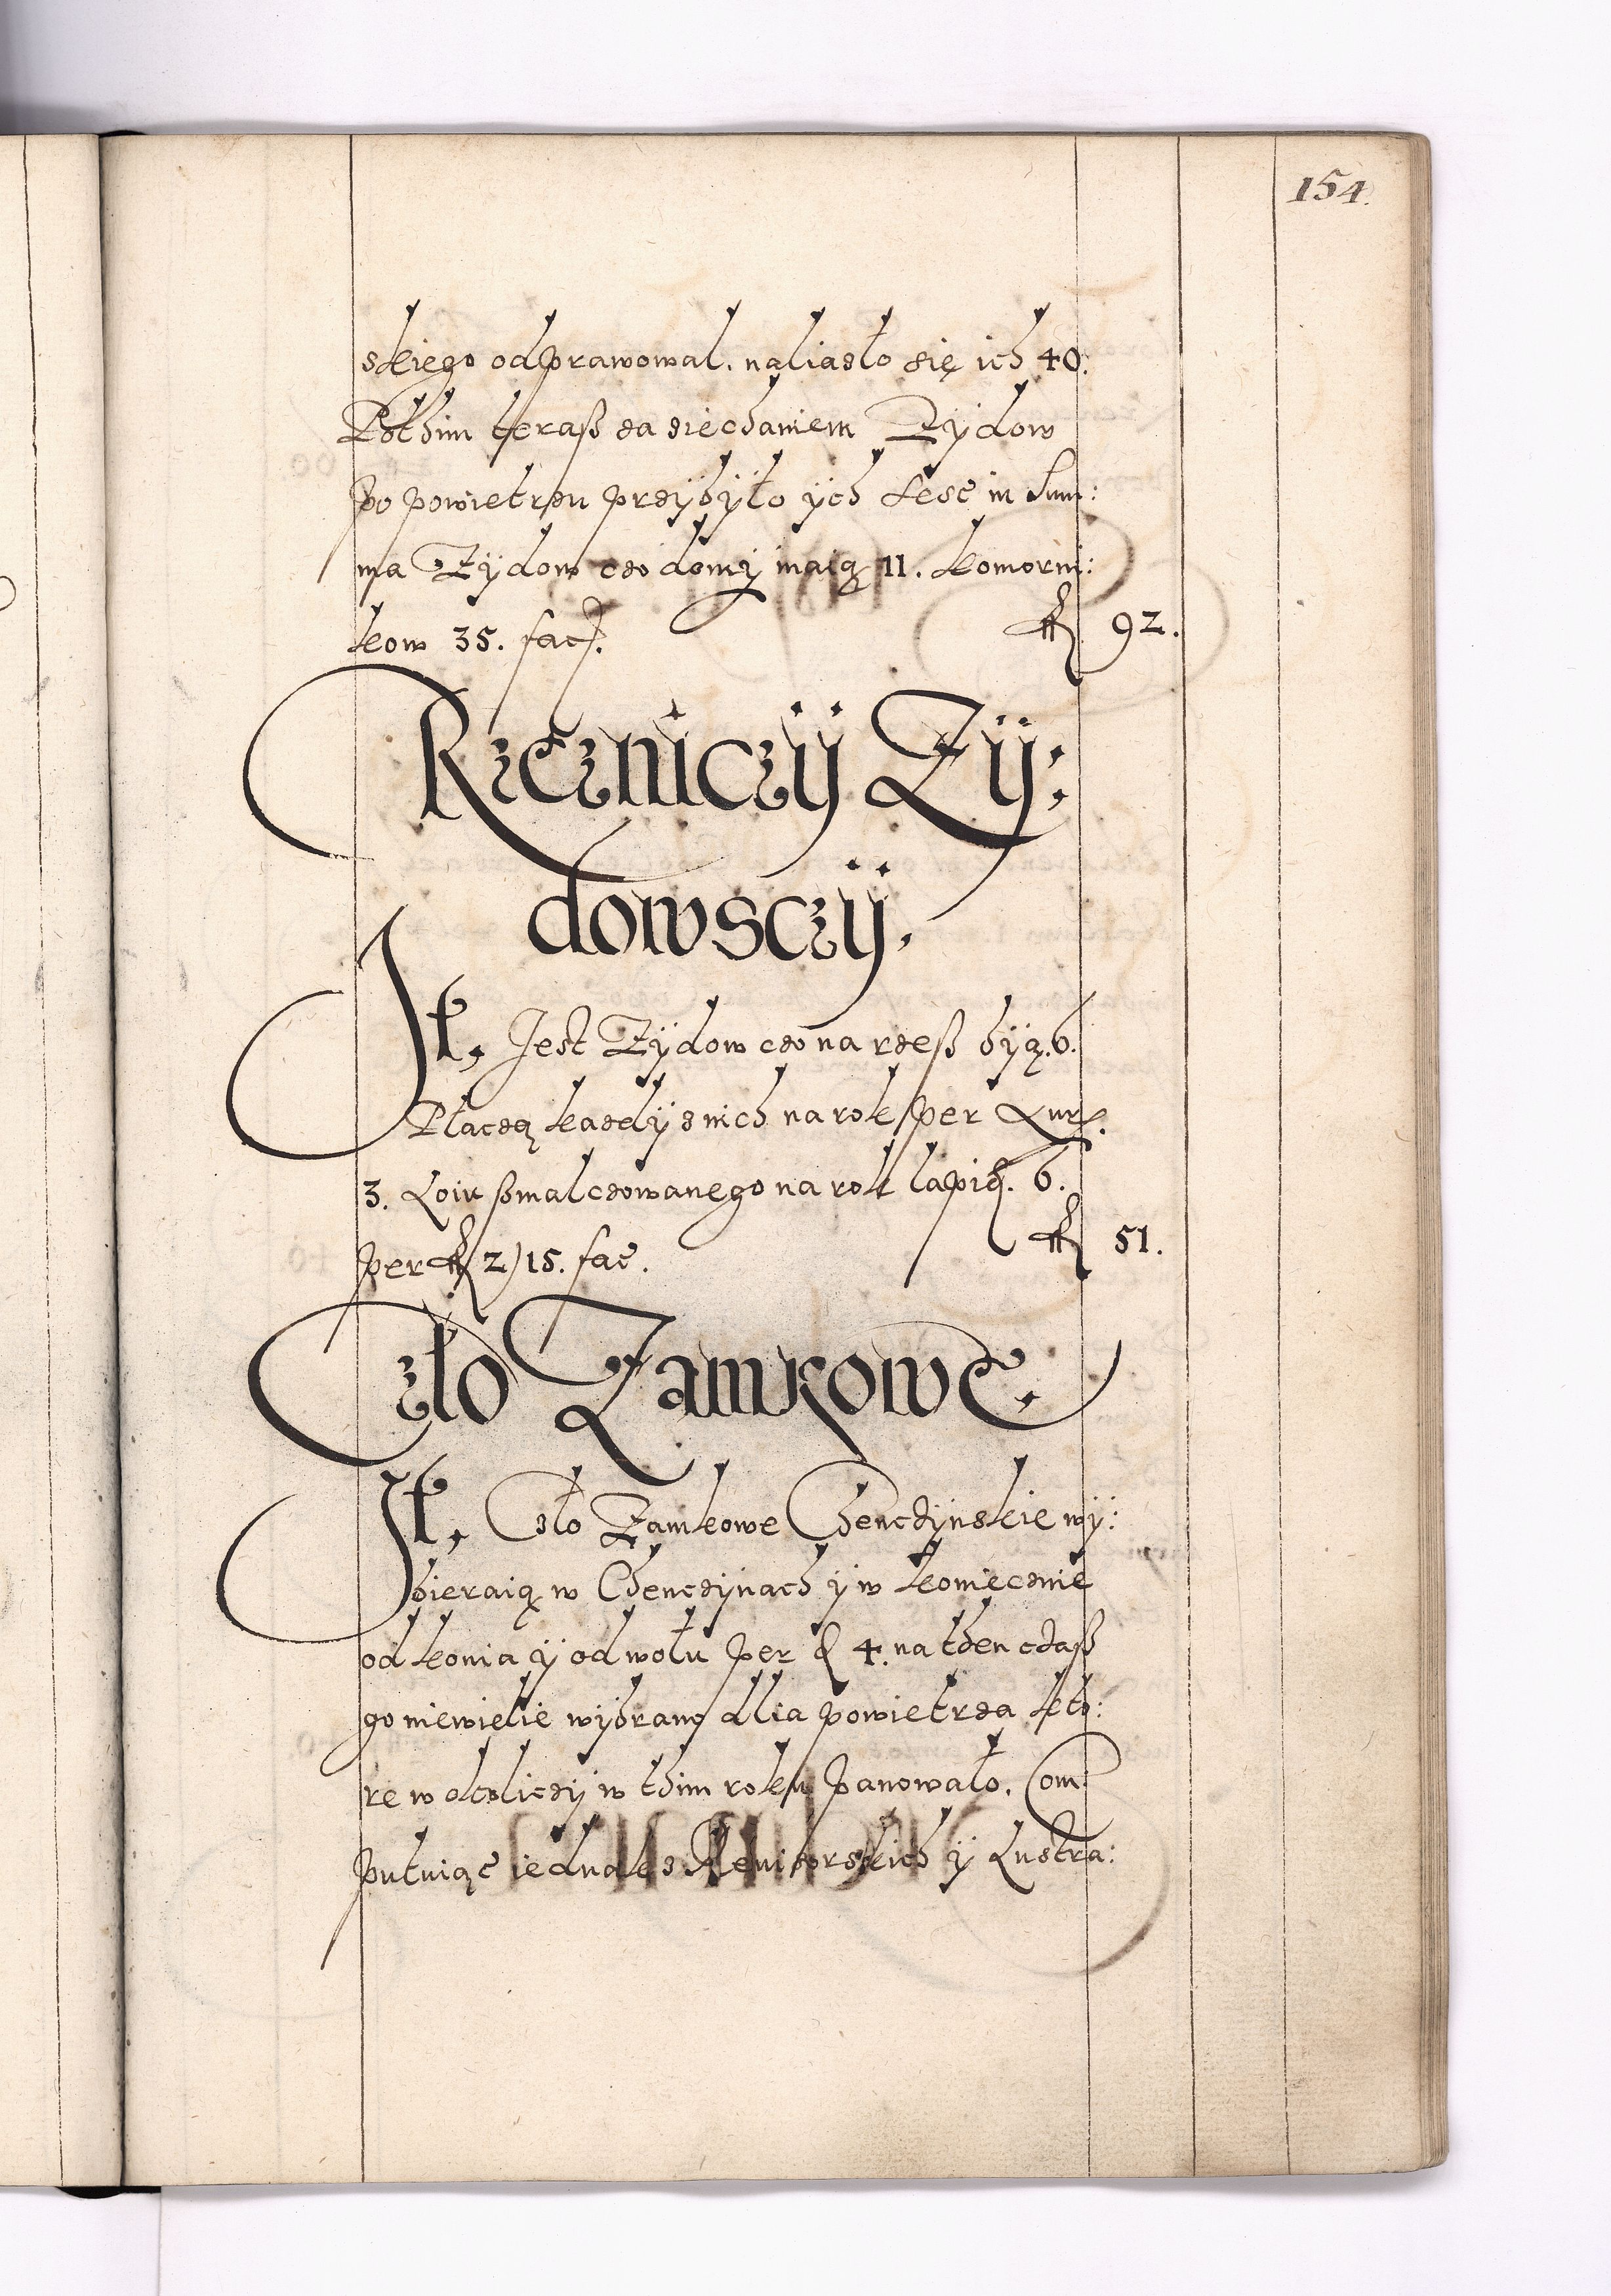 154.
skiego odprawowal. naliaslo się ich 40.
Pothim teraß za ziechaniem Zÿdow
po powietrzu przÿbÿło ÿch. Jest in Sum:
ma Zÿdow czo domÿ maią 11. komorni:
kow 35. fac. fl 92.
Rzezniczÿ Zÿ:
dowsczÿ.
It, Jest Zÿdow czo na rzeß biją. 6.
Płaczą kazdÿ z nich na rok per Lur.
3. Loiu ßmalczowanego na rok lapid. 6.
per fl 2/15. fac. fl 51.
Czło Zamkowe.
It, Czło Zamkowe Chenczÿnskie wÿ:
bieraią w Chenczÿnach ÿ w koniecznie
od konia ÿ od wołu per d 4. na then czaß
go niewielie wÿbrano dlia powietrza kto:
re w okoliczÿ w thim roku panowało. Com:
putuiącz iednak z Rewizorskich ÿ Lustra: